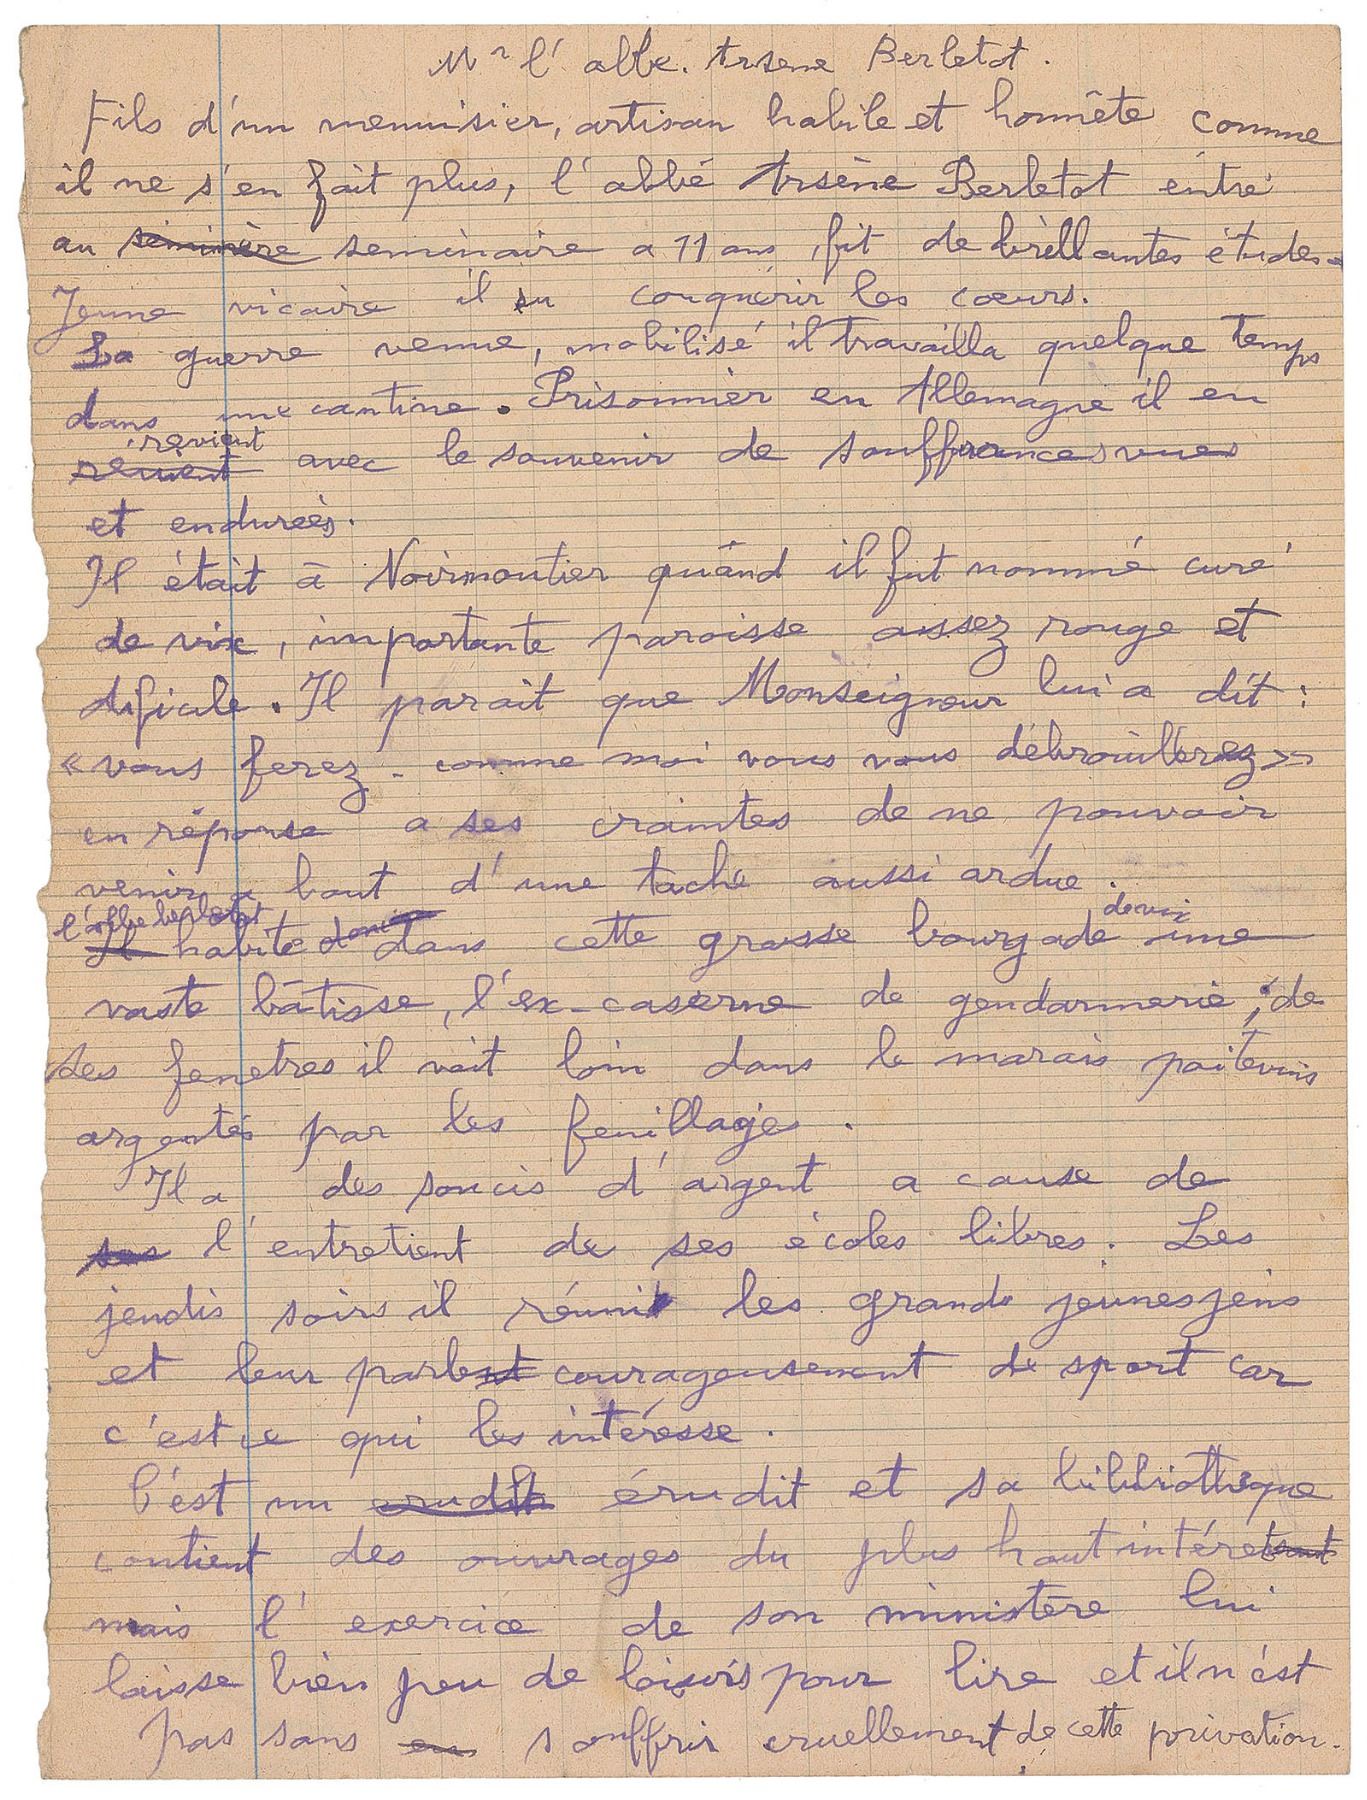 Mr l'abbé. Arsene Berletot.
Fils d'un menuisier, artisan habile et honnête comme
il ne s'en fait plus, l'abbé Arsène Berletot entré
au seminère seminaire a 11 ans, fit de brillantes études.
Jeune vicaire il su conquérir les cœurs.
La guerre venue, mobilisé il travailla quelque temps
dans une cantine. Prisonnier en Allemagne il en
revient
revient avec le souvenir de souffrances vues
et endurées.
Il était à Noirmoutier quand il fut nommé curé
de vix, importante paroisse assez rouge et
dificile. Il parait que Monseigneur lui a dit :
« vous ferez comme moi vous vous débrouillerez »
en réponse a ses craintes de ne pouvoir
venir a bout d'une tache aussi ardue.
l'abbe berletot de vix
Il habite dans dans cette grosse bourgade une
vaste bâtisse, l'ex-caserne de gendarmerie, de
ses fenetres il voit loin dans le marais poitevins
argentés par les feuillages.
Il a des soucis d'argent a cause de
ses l'entretient de ses écoles libres. Les
jeudis soirs il réunit les grands jeunes jens
et leur parlent courageusement de sport car
c'est ce qui les intéresse.
C'est un erudit érudit et sa bibliothèque
contient des ouvrages du plus haut intéret
mais l'exercice de son ministère lui
laisse bien peu de loisirs pour lire et il n'est
pas sans en souffrir cruellement de cette privation.